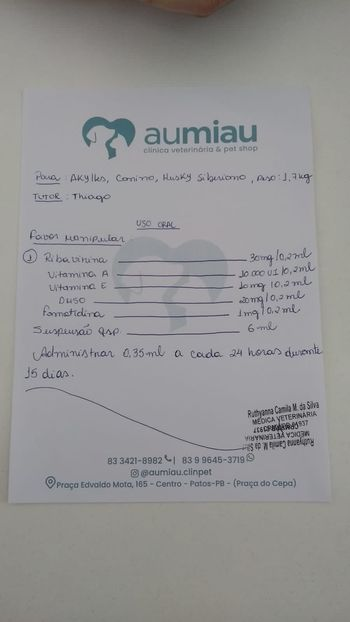 aumiau
clínica veterinária & pet shop
Para : AKylles, Canino, Husky Siberiano, Peso: 1,7kg
TUTOR : Thiago
USO ORAL
Favor manipular
1 Ribavirina 30mg/0,2ml
Vitamina A 10.000 UI/0,2ml
Vitamina E 10mg/0,2ml
DMSO 20mg/0,2ml
Famotidina 1mg/0,2ml
Suspensão qsp. 6ml
Administrar 0,35ml a cada 24 horas durante
15 dias.
Ruthyanna Camila M. da Silva
MÉDICA VETERINÁRIA
MÉDICA VETERINÁRIA
Ruthyanna Camila M. da Silva
83 3421-8982 | 83 9 9645-3719
@aumiau.clinpet
Praça Edvaldo Mota, 165 - Centro - Patos-PB - (Praça do Cepa)